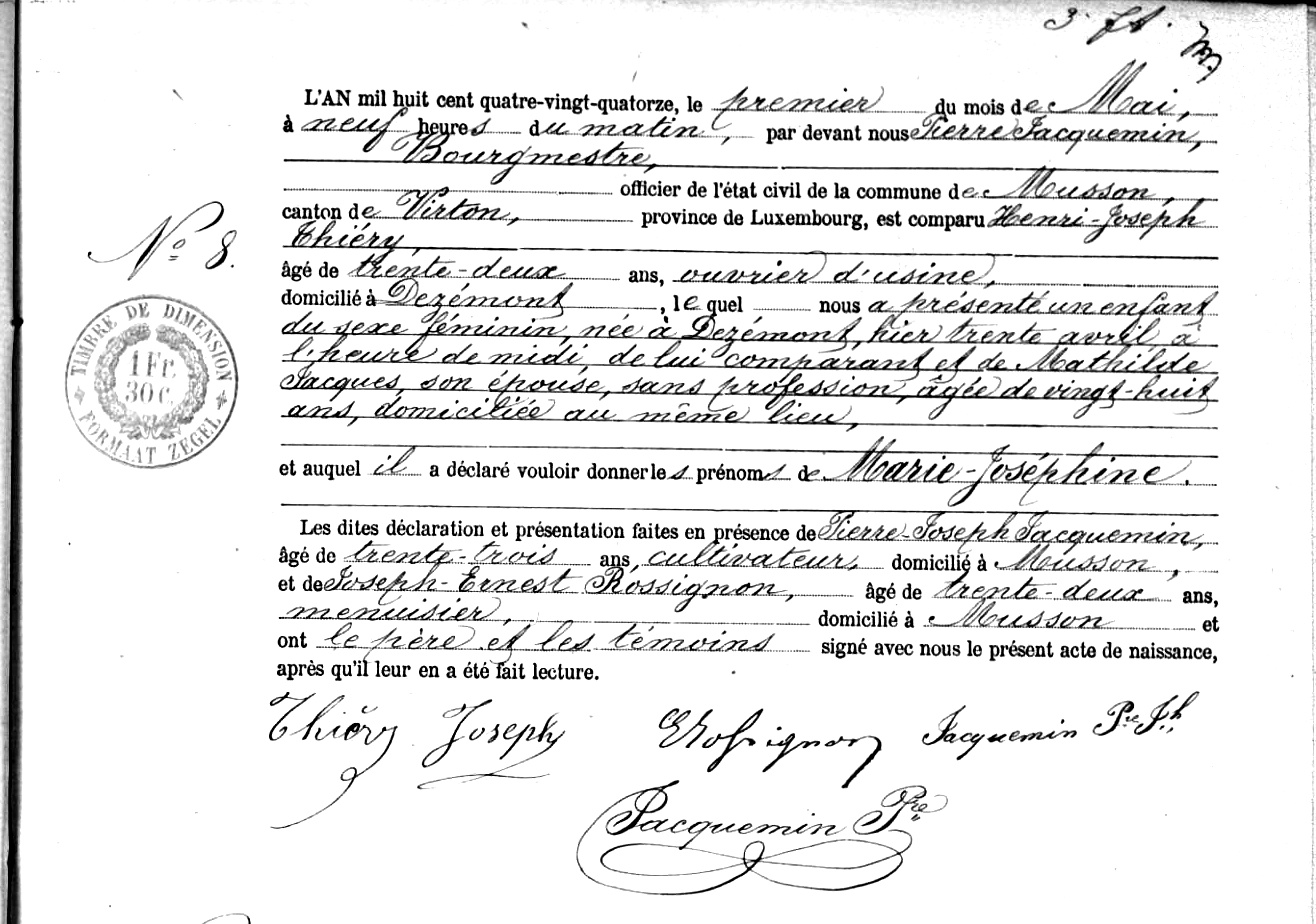 3. ft.
L'AN mil huit cent quatre-vingt-quatorze, le premier du mois de Mai,
à neuf heures du matin, par devant nous Pierre Jacquemin,
Bourgmestre,
officier de l'état civil de la commune de Musson,
canton de Virton, province de Luxembourg, est comparu Henri-Joseph
Thiéry,
âgé de trente-deux ans, ouvrier d'usine,
domicilié à Dezémont, lequel nous a présenté un enfant
du sexe féminin, née à Dezémont, hier trente avril à
l'heure de midi, de lui comparant et de Mathilde
Jacques, son épouse, sans profession, âgée de vingt-huit
ans, domiciliée au même lieu,
et auquel il a déclaré vouloir donner les prénoms de Marie-Joséphine.
Les dites déclaration et présentation faites en présence de Pierre-Joseph Jacquemin,
âgé de trente-trois ans, cultivateur, domicilié à Musson,
et de Joseph-Ernest Rossignon, âgé de trente-deux ans,
menuisier, domicilié à Musson et
ont le père et les témoins signé avec nous le présent acte de naissance,
après qu'il leur en a été fait lecture.
Thiéry Joseph ERossignon Jacquemin Pre Jh
Jacquemin Pre
No 8.
TIMBRE DE DIMENSION
1 Fr.
30 C.
FORMAAT ZEGEL